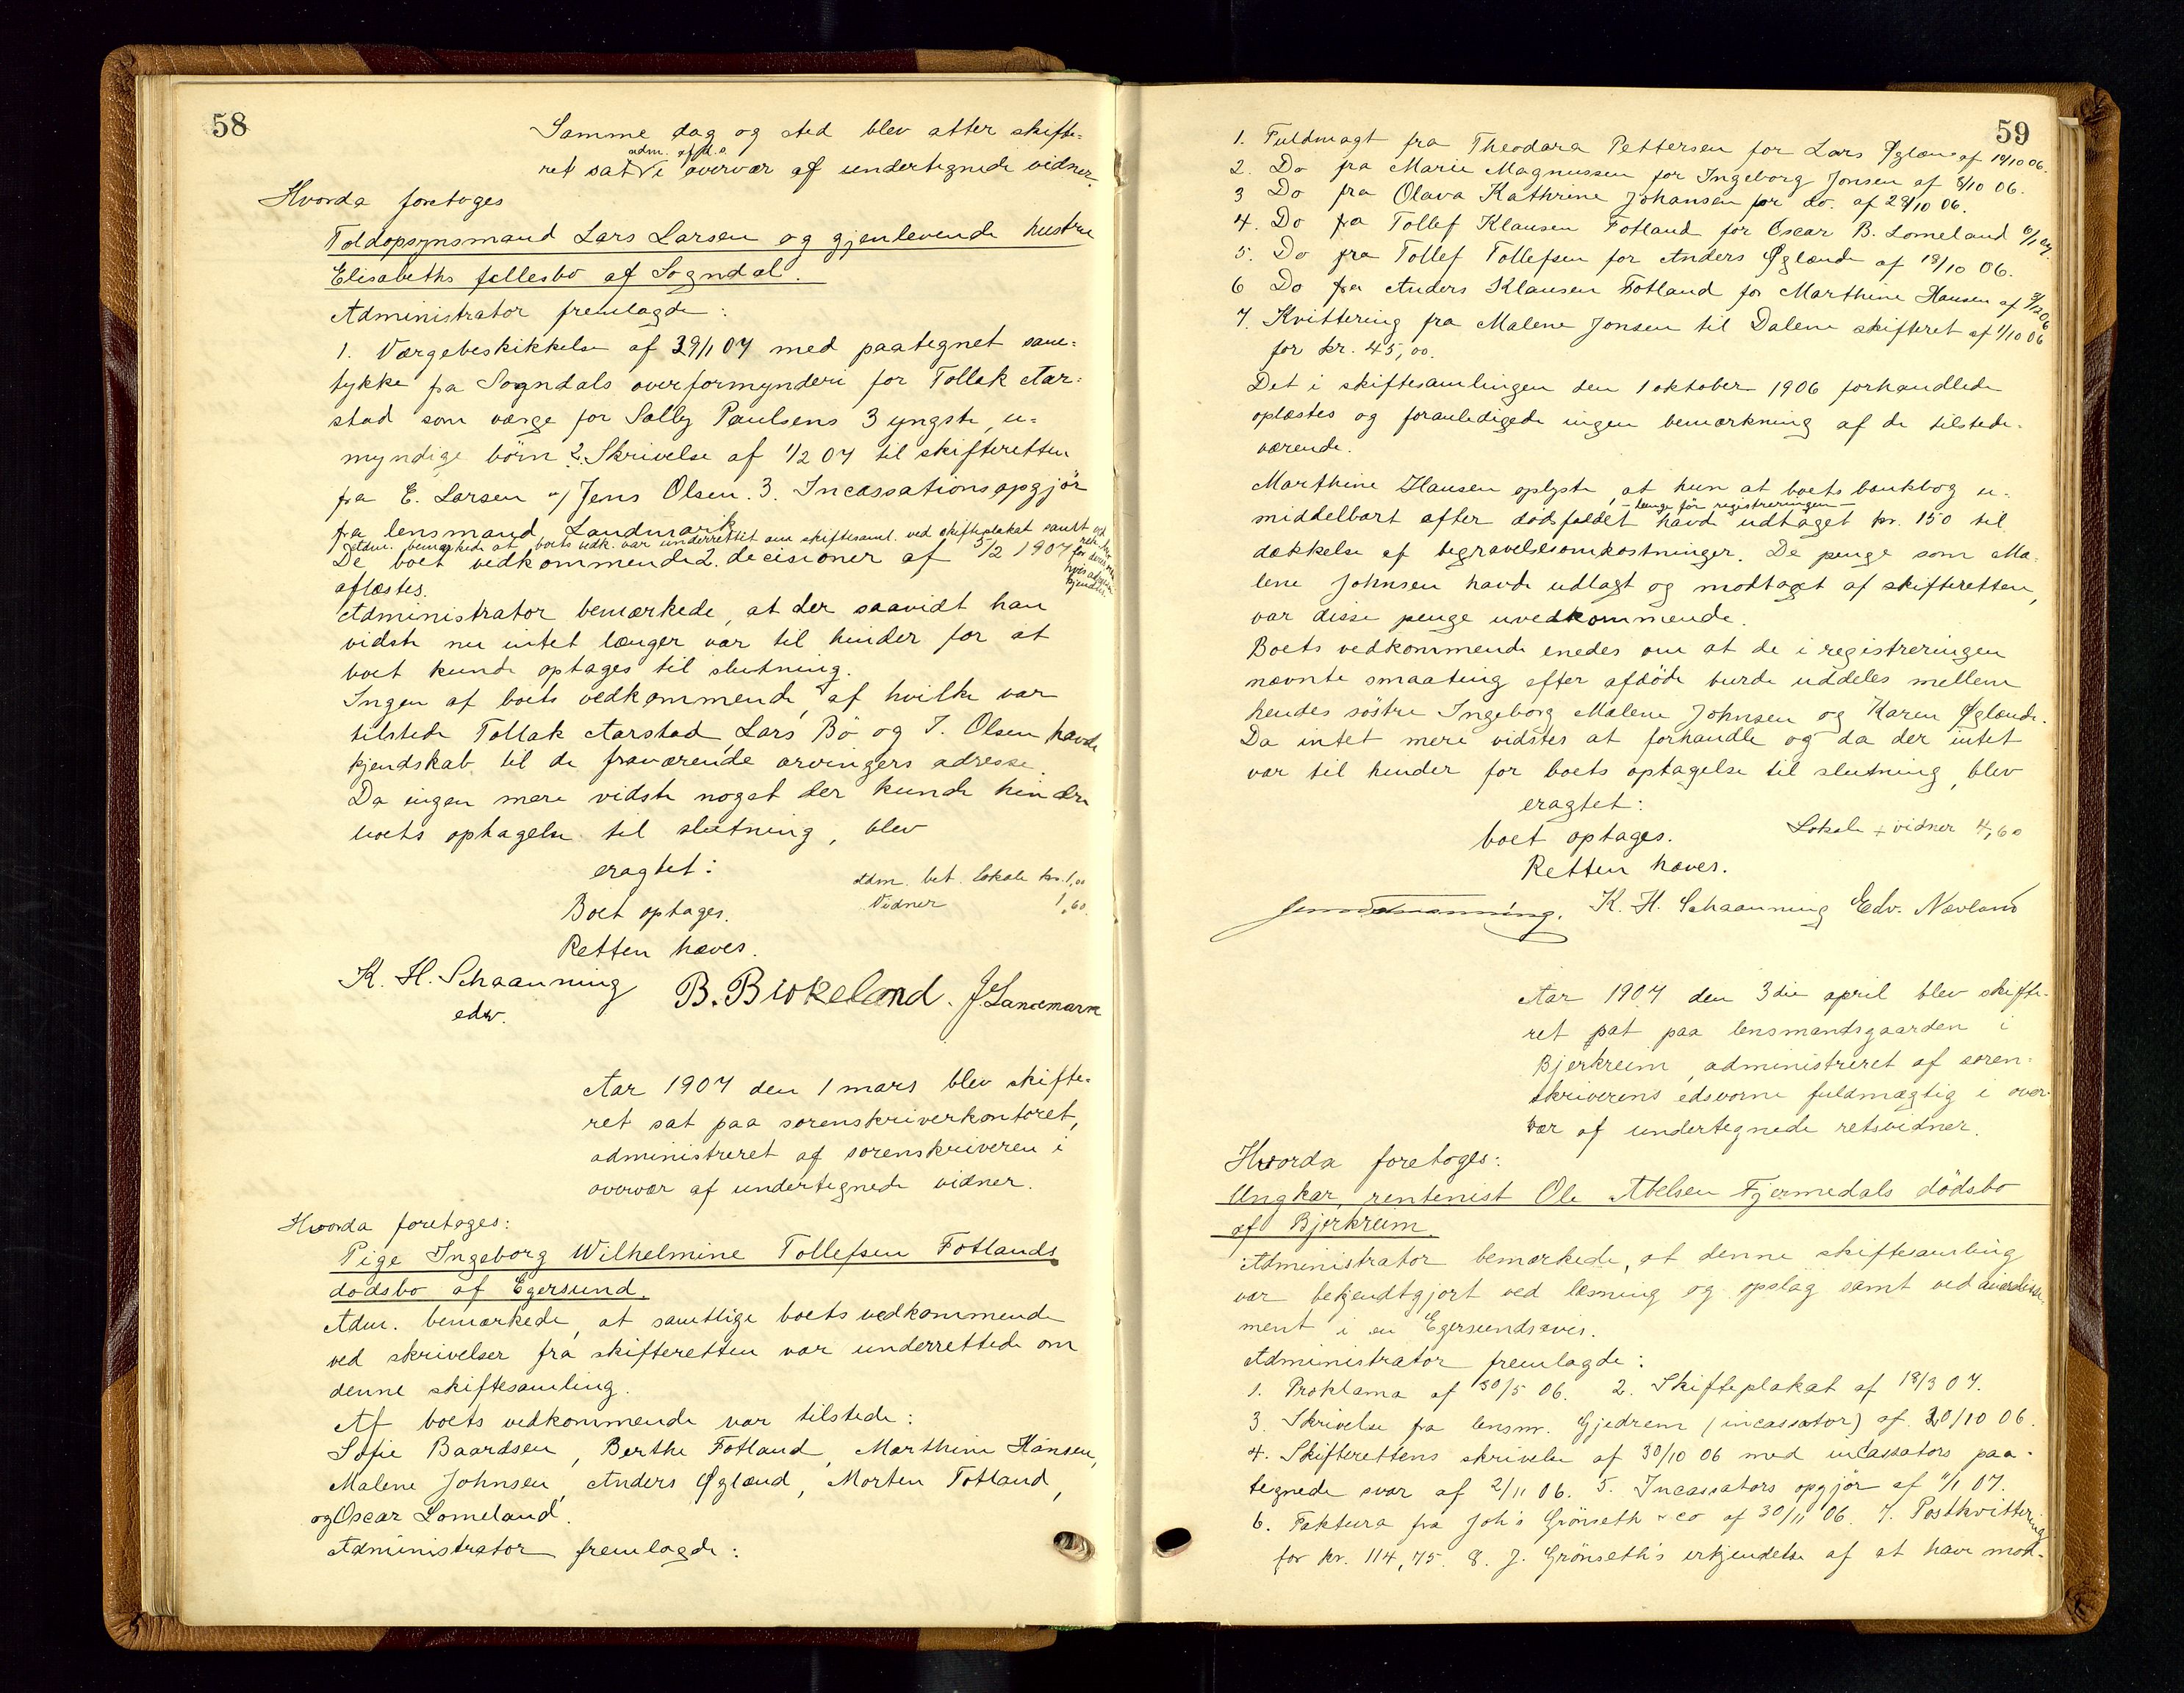 58
Samme dag og sted blev atter skifte-
adm. af d.o.
ret sat i overvær af undertegnede vidner.
Hvorda foretoges
Toldopsynsmand Lars Larsen og gjenlevende hustru
Elisabeths fellesbo af Sogndal.
Administrator fremlagde:
1. Værgebeskikkelse af 29/1 07 med paategnet sam-
tykke fra Sogndals overformynderi for Tollak Aar-
stad som værge for Sally Paulsens 3 yngste, u-
myndige börn 2. Skrivelse af 1/2 07 til skifteretten
fra E. Larsen v/ Jens Olsen. 3. Incassationsopgjör
fra lensmand Landmark
Adm. bemærkede at boets vedk. var underrettet om skiftesaml. ved skifteplakat samt
De boet vedkommende 2. decisioner af 5/2 1907
aflæstes.
Administrator bemærkede, at der saavidt han
vidste nu intet længer var til hinder for at
boet kunde optages til slutning.
Ingen af boets vedkommende, af hvilke var
tilstede Tollak Aarstad, Lars Bö og J. Olsen havde
kjendskab til de fraværende arvingers adresse
Da ingen mere vidste noget der kunde hindre
boets optagelse til slutning, blev
eragtet:
Adm. bet. lokale kr. 1,00
Vidner 1,60.
Boet optages.
Retten hæves.
K. H. Schaanning B. Birkeland. J. Landmark
edsv.
Aar 1907 den 1 mars blev skifte-
ret sat paa sorenskriverkontoret,
administreret af sorenskriveren i
overvær af undertegnede vidner.
Hvorda foretoges:
Pige Ingeborg Wilhelmine Tollefsen Fotlands
dödsbo af Egersund.
Adm. bemærkede, at samtlige boets vedkommende
ved skrivelser fra skifteretten var underrettede om
denne skiftesamling.
Af boets vedkommende var tilstede:
Sofie Baardsen, Berthe Fotland, Marthine Hansen,
Malene Johnsen, Anders Øglænd, Morten Fotland,
og Oscar Lomeland.
Administrator fremlagde:
59
1. Fuldmagt fra Theodara Pettersen for Lars Øglænd af 19/10 06.
2. Do fra Marie Magnussen for Ingeborg Jonsen af 8/10 06.
3 Do fra Olava Kathrine Johansen for do. af 29/10 06.
4. Do fra Tollef Klausen Fotland for Oscar B. Lomeland 6/1 07.
5. Do fra Tollef Tollefsen for Anders Øglænd af 18/10 06.
6 Do fra Anders Klausen Fotland for Marthine Hansen af 9/12 06
7. Kvittering fra Malene Jonsen til Dalene skifteret af 1/10 06
for kr. 45,00.
Det i skiftesamlingen den 1 oktober 1906 forhandlede
oplæstes og foranledigede ingen bemærkning af de tilstede-
værende.
Marthine Hansen oplyste, at hun at boets bankbog u-
- længe för registreringen -
middelbart efter dödsfaldet havde udtaget kr. 150 til
dækkelse af begravelsesomkostninger. De penge som Ma-
lene Johnsen havde udlagt og modtaget af skifteretten,
var disse penge uvedkommende.
Boets vedkommende enedes om at de i registreringen
nævnte smaating efter afdöde burde uddeles mellem
hendes söstre Ingeborg Malene Johnsen og Karen Øglænd.
Da intet mere vidstes at forhandle og da der intet
var til hinder for boets optagelse til slutning, blev
eragtet:
boet optages. Lokale + vidner 4,60
Retten hæves.
K. H. Schaanning Edv. Nævland
Aar 1907 den 3die april blev skifte-
ret sat paa lensmandsgaarden i
Bjerkreim, administreret af soren-
skriverens edsvorne fuldmægtig i over-
vær af undertegnede retsvidner.
Hvorda foretoges:
Ungkar, rentenist Ole Abelsen Fjermedals dödsbo
af Bjerkreim.
Administrator bemærkede, at denne skiftesamling
var bekjendtgjort ved læsning og opslag samt ved averdisse-
ment i en Egersundsavis.
Administrator fremlagde:
1. Proklama af 30/5 06. 2. Skifteplakat af 18/3 07.
3. Skrivelse fra lensm. Gjedrem (incassator) af 20/10 06.
4. Skifterettens skrivelse af 30/10 06 med incassators paa-
tegnede svar af 2/11 06. 5. Incassators opgjör af 11/1 07.
6. Faktura fra Joh's Grönseth & co af 30/11 06. 7. Postkvittering
for kr. 114,75. 8. J. Grönseth's erkjendelse af at have mod-